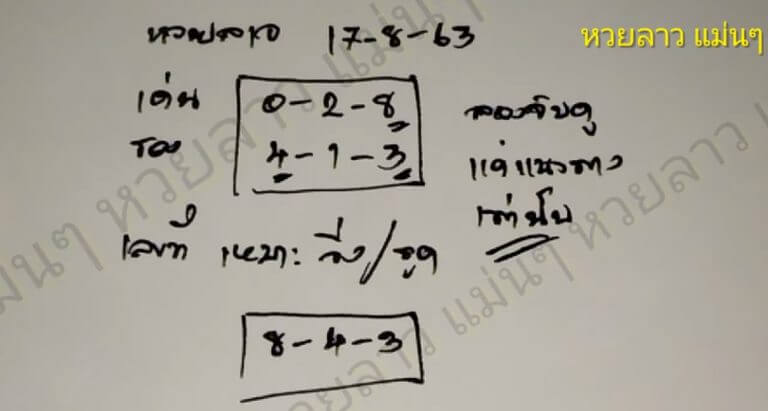 หวยลาว แม่นๆ
หวยลาว 17-8-63
เด่น 0-2-8
รอง 4-1-3
ลองจับดู
แค่แนวทาง
เท่านั้น
เลขที่ เหมาะ วิ่ง/รูด
8-4-3
หวยลาว แม่นๆ หวยลาว แม่นๆ